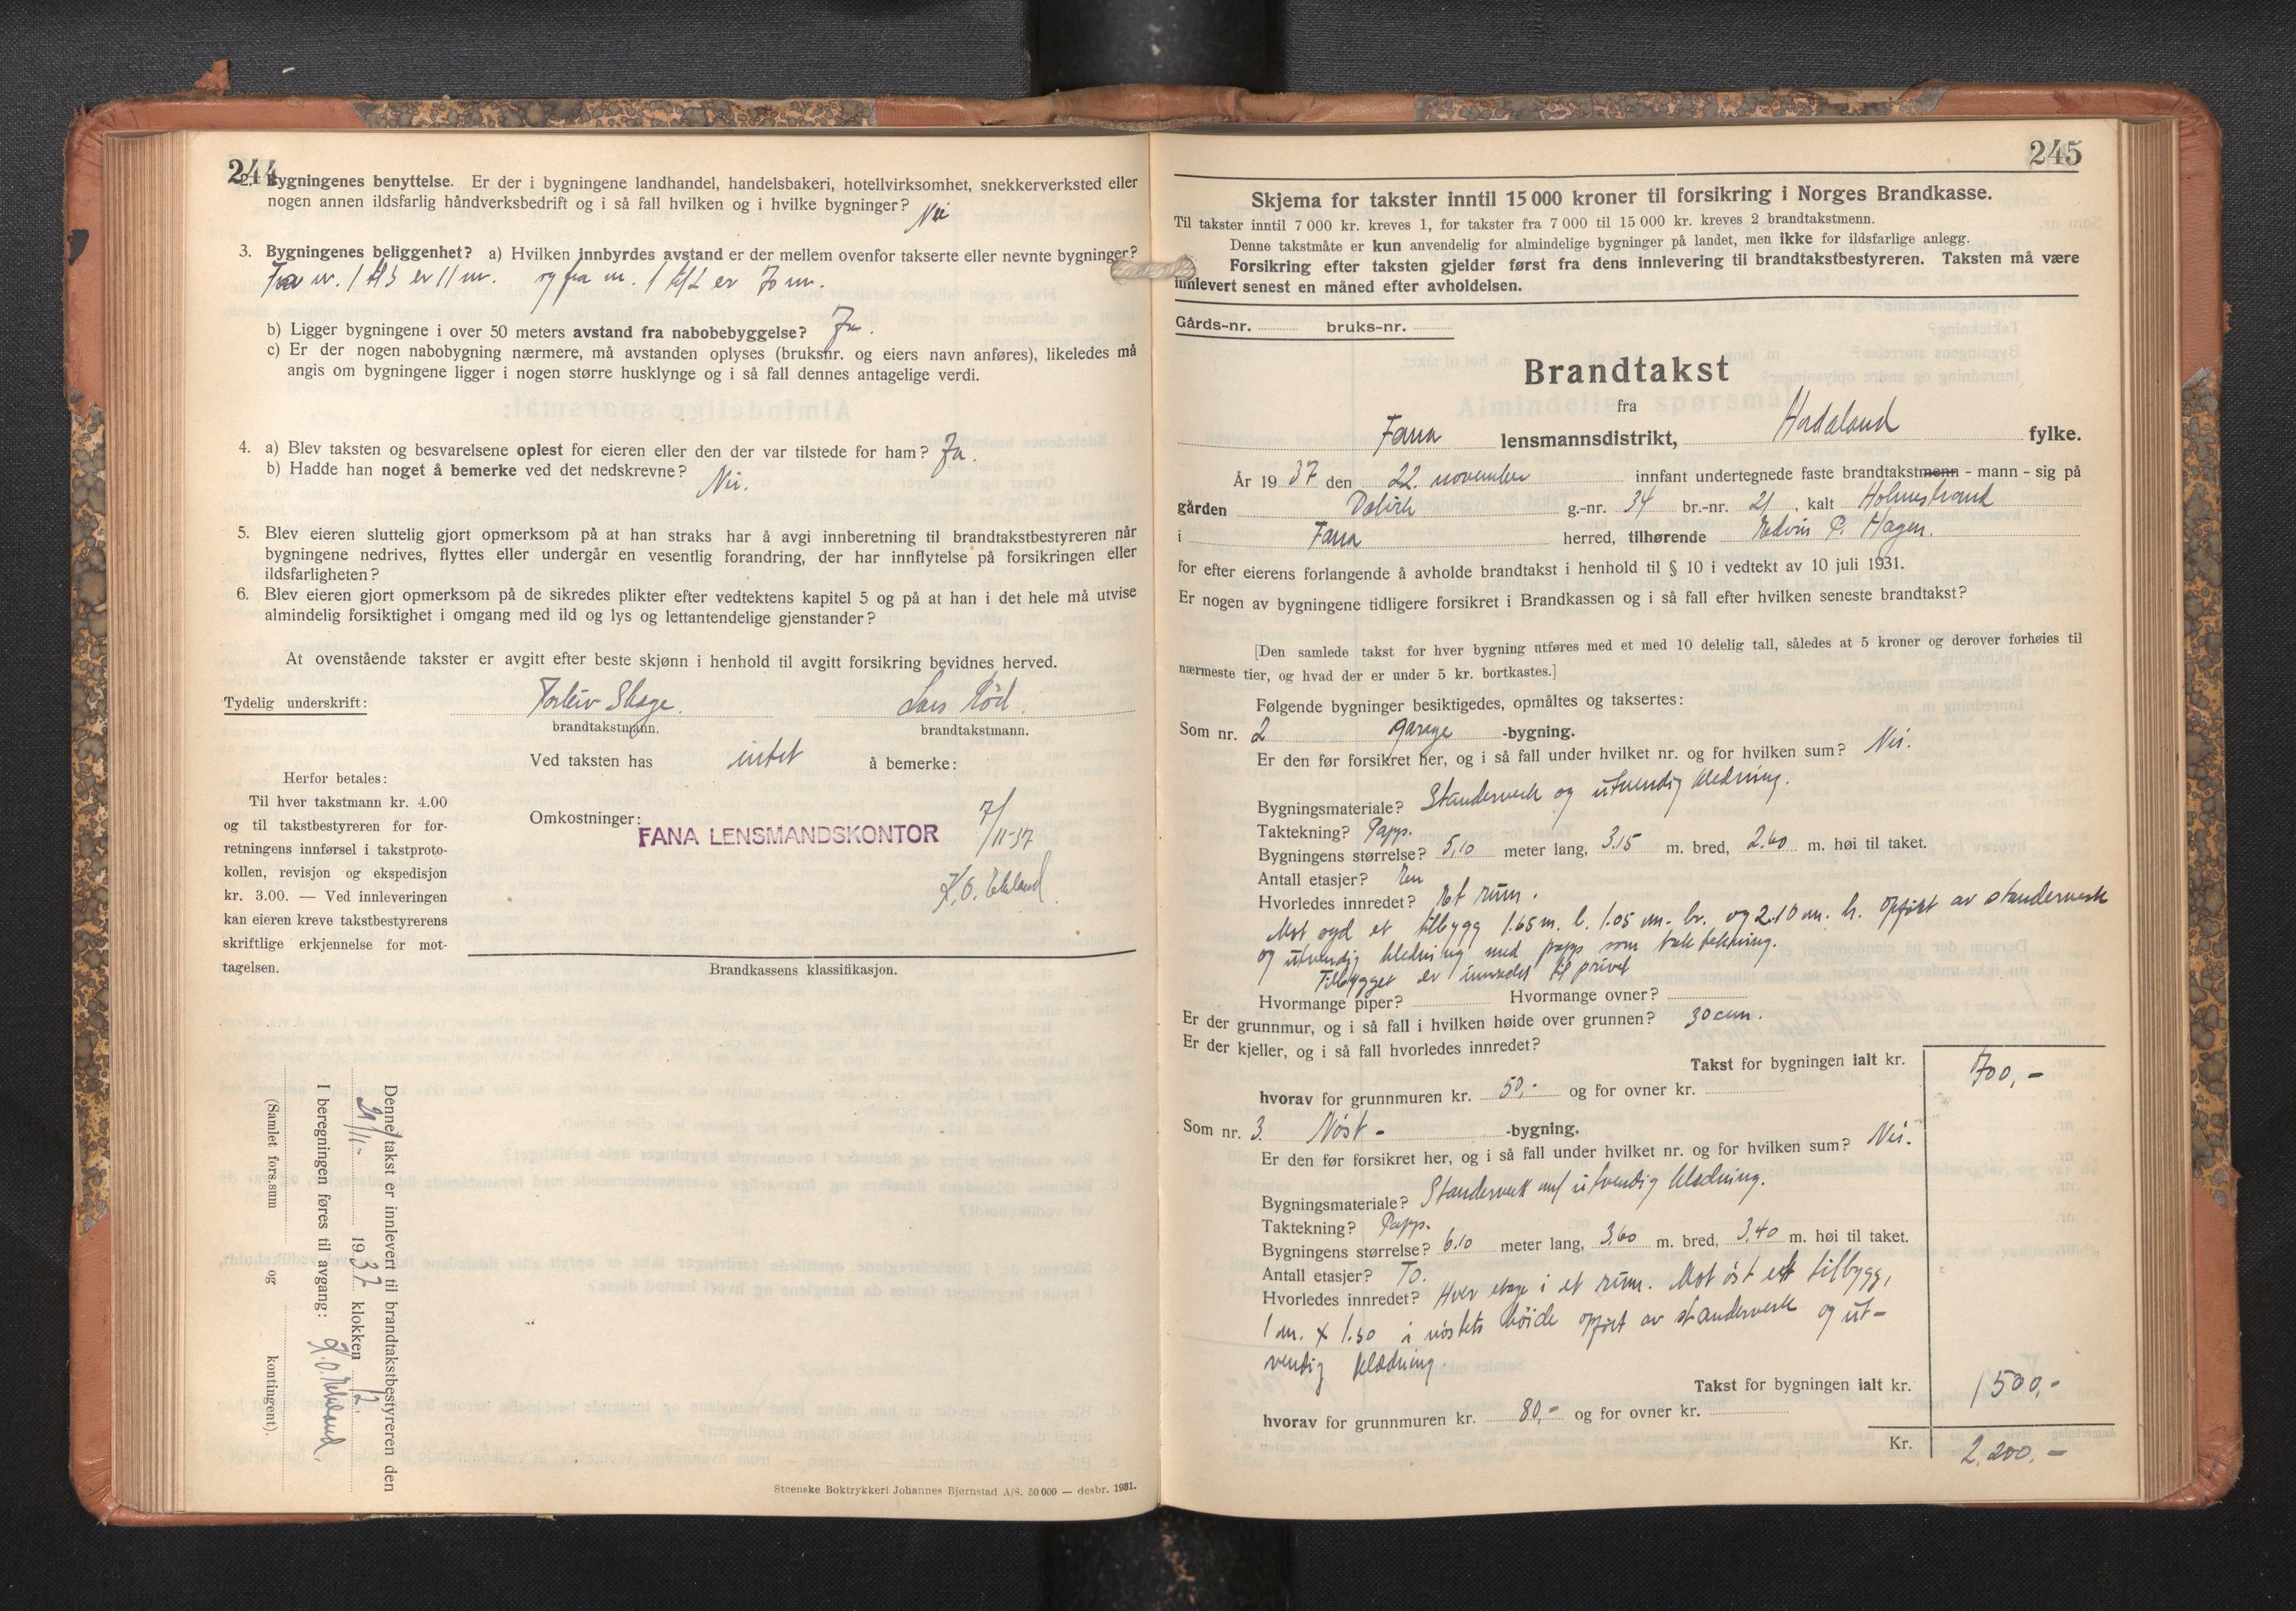 244
2. Bygningenes benyttelse. Er der i bygningene landhandel, handelsbakeri, hotellvirksomhet, snekkerverksted eller
nogen annen ildsfarlig håndverksbedrift og i så fall hvilken og i hvilke bygninger? Nei
3. Bygningenes beliggenhet? a) Hvilken innbyrdes avstand er der mellem ovenfor takserte eller nevnte bygninger?
Fra nr. 1 til 3 er 11 m. og fra nr. 1 til 2 er 70 m.
b) Ligger bygningene i over 50 meters avstand fra nabobebyggelse? Ja.
c) Er der nogen nabobygning nærmere, må avstanden oplyses (bruksnr. og eiers navn anføres), likeledes må
angis om bygningene ligger i nogen større husklynge og i så fall dennes antagelige verdi.
4. a) Blev taksten og besvarelsene oplest for eieren eller den der var tilstede for ham? Ja.
b) Hadde han noget å bemerke ved det nedskrevne? Nei.
5. Blev eieren sluttelig gjort opmerksom på at han straks har å avgi innberetning til brandtakstbestyreren når
bygningene nedrives, flyttes eller undergår en vesentlig forandring, der har innflytelse på forsikringen eller
ildsfarligheten?
6. Blev eieren gjort opmerksom på de sikredes plikter efter vedtektens kapitel 5 og på at han i det hele må utvise
almindelig forsiktighet i omgang med ild og lys og lettantendelige gjenstander?
At ovenstående takster er avgitt efter beste skjønn i henhold til avgitt forsikring bevidnes herved.
Tydelig underskrift: Torleiv Skage. Lars Rød.
brandtakstmann. brandtakstmann.
Ved taksten has intet å bemerke:
Herfor betales:
Til hver takstmann kr. 4.00
og til takstbestyreren for for-
retningens innførsel i takstproto-
kollen, revisjon og ekspedisjon
kr. 3.00. — Ved innleveringen
kan eieren kreve takstbestyrerens
skriftlige erkjennelse for mot-
tagelsen.
Omkostninger:
FANA LENSMANDSKONTOR 7/11-37
Brandkassens klassifikasjon.
Denne takst er innlevert til brandtakstbestyreren den
24/11- 1937 klokken 12.
I beregningen føres til avgang:
(Samlet fors.sum og kontingent).
Steenske Boktrykkeri Johannes Bjørnstad A/S. 50 000 — desbr. 1931.
245
Skjema for takster inntil 15 000 kroner til forsikring i Norges Brandkasse.
Til takster inntil 7 000 kr. kreves 1, for takster fra 7 000 til 15 000 kr. kreves 2 brandtakstmenn.
Denne takstmåte er kun anvendelig for almindelige bygninger på landet, men ikke for ildsfarlige anlegg.
Forsikring efter taksten gjelder først fra dens innlevering til brandtakstbestyreren. Taksten må være
innlevert senest en måned efter avholdelsen.
Gårds-nr. bruks-nr.
Brandtakst
fra
Fana lensmannsdistrikt, Hordaland fylke.
År 1937 den 22. november innfant undertegnede faste brandtakstmenn - mann - sig på
gården g.-nr. 34 br.-nr. 21, kalt Holmestrand
i Fana herred, tilhørende Edvin P. Hagen.
for efter eierens forlangende å avholde brandtakst i henhold til § 10 i vedtekt av 10 juli 1931.
Er nogen av bygningene tidligere forsikret i Brandkassen og i så fall efter hvilken seneste brandtakst?
[Den samlede takst for hver bygning utføres med et med 10 delelig tall, således at 5 kroner og derover forhøies til
nærmeste tier, og hvad der er under 5 kr. bortkastes.]
Følgende bygninger besiktigedes, opmåltes og taksertes:
Som nr. 2 garage -bygning.
Er den før forsikret her, og i så fall under hvilket nr. og for hvilken sum? Nei.
Bygningsmateriale? Standerverk og utvendig kledning.
Taktekning? Papp.
Bygningens størrelse? 5,10 meter lang, 3.15 m. bred, 2.60 m. høi til taket.
Antall etasjer? En
Hvorledes innredet? Et rum.
Mot syd et tilbygg 1.65 m. l. 1.05 m. br. og 2.10 m. h. opført av standerverk
og utvendig kledning med papp som taktekning.
Tilbygget er innredet til privet
Hvormange piper? Hvormange ovner?
Er der grunnmur, og i så fall i hvilken høide over grunnen? 30 cm.
Er der kjeller, og i så fall hvorledes innredet?
Takst for bygningen ialt kr. 700,-
hvorav for grunnmuren kr. 50,- og for ovner kr.
Som nr. 3. Nøst- -bygning.
Er den før forsikret her, og i så fall under hvilket nr. og for hvilken sum? Nei.
Bygningsmateriale? Standerverk m/ utvendig kledning.
Taktekning? Papp.
Bygningens størrelse? 6.10 meter lang, 3,60 m. bred, 3,40 m. høi til taket.
Antall etasjer? To.
Hvorledes innredet? Hver etage i et rum. Mot øst et tilbygg,
1 m. x 1.50 i nøstets høide opført av standerverk og ut-
vendig kledning.
Takst for bygningen ialt kr. 1500,-
hvorav for grunnmuren kr. 80,- og for ovner kr.
Kr. 2.200,-